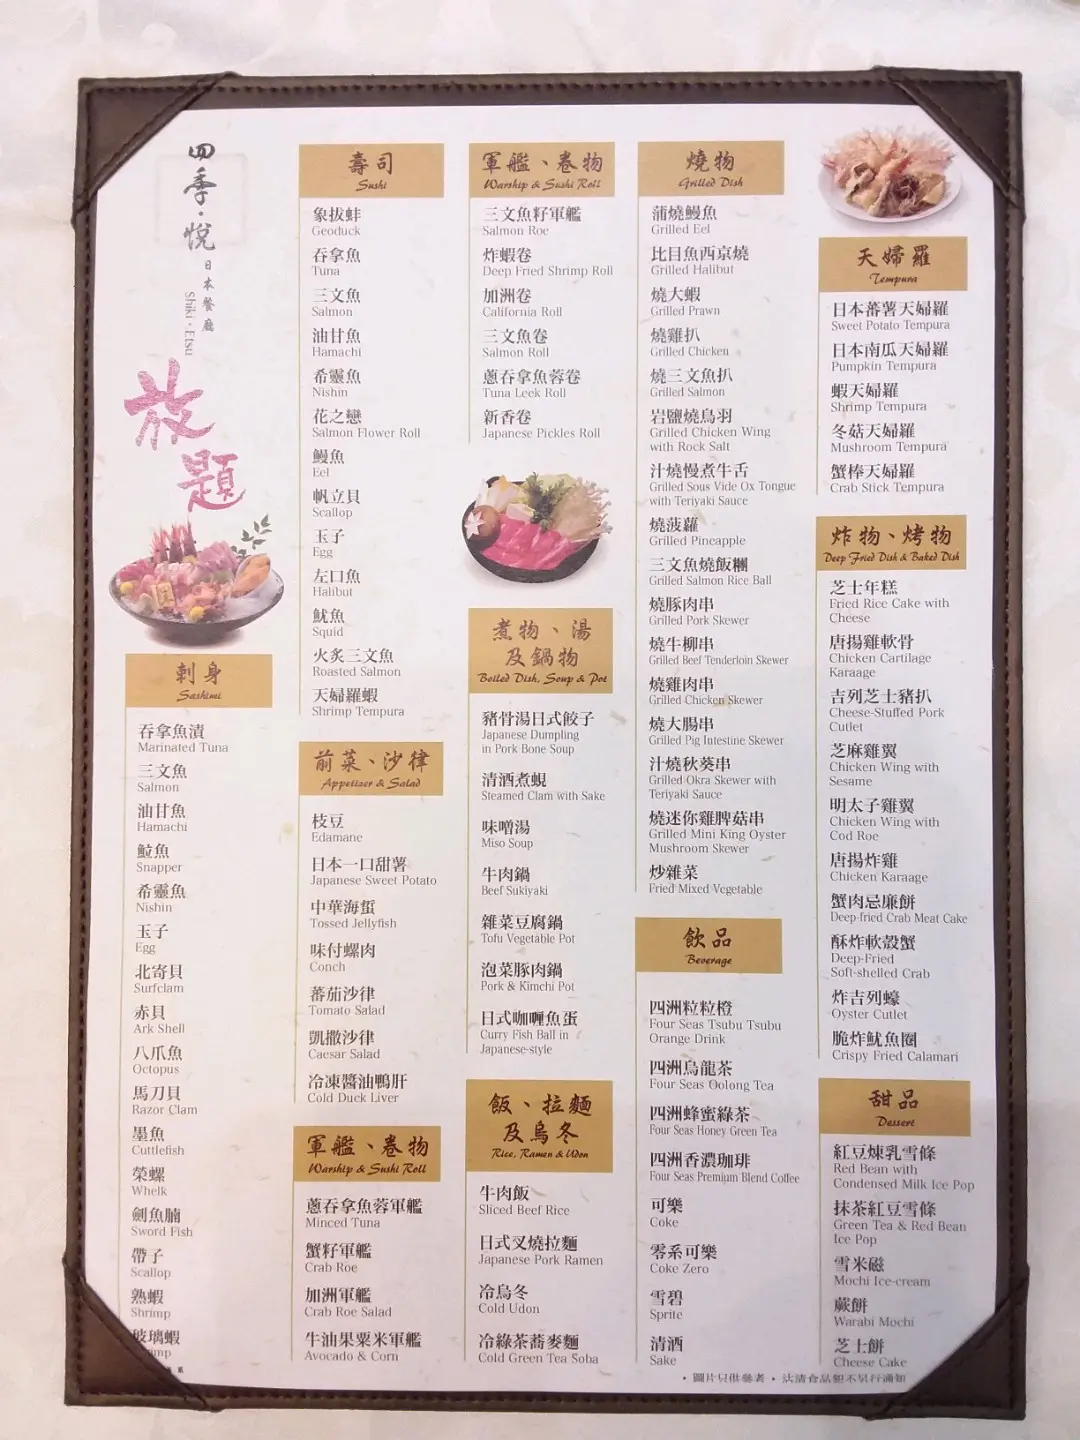 四季·悅
日本餐廳
Shiki·Etsu
放題
刺身
Sashimi
吞拿魚漬
Marinated Tuna
三文魚
Salmon
油甘魚
Hamachi
鱲魚
Snapper
希靈魚
Nishin
玉子
Egg
北寄貝
Surfclam
赤貝
Ark Shell
八爪魚
Octopus
馬刀貝
Razor Clam
墨魚
Cuttlefish
榮螺
Whelk
劍魚腩
Sword Fish
帶子
Scallop
熟蝦
Shrimp
玻璃蝦
壽司
Sushi
象拔蚌
Geoduck
吞拿魚
Tuna
三文魚
Salmon
油甘魚
Hamachi
希靈魚
Nishin
花之戀
Salmon Flower Roll
鰻魚
Eel
帆立貝
Scallop
玉子
Egg
左口魚
Halibut
魷魚
Squid
火炙三文魚
Roasted Salmon
天婦羅蝦
Shrimp Tempura
前菜、沙律
Appetizer & Salad
枝豆
Edamane
日本一口甜薯
Japanese Sweet Potato
中華海蜇
Tossed Jellyfish
味付螺肉
Conch
蕃茄沙律
Tomato Salad
凱撒沙律
Caesar Salad
冷凍醬油鴨肝
Cold Duck Liver
軍艦、卷物
Warship & Sushi Roll
蔥吞拿魚蓉軍艦
Minced Tuna
蟹籽軍艦
Crab Roe
加洲軍艦
Crab Roe Salad
牛油果粟米軍艦
Avocado & Corn
軍艦、卷物
Warship & Sushi Roll
三文魚籽軍艦
Salmon Roe
炸蝦卷
Deep Fried Shrimp Roll
加洲卷
California Roll
三文魚卷
Salmon Roll
蔥吞拿魚蓉卷
Tuna Leek Roll
新香卷
Japanese Pickles Roll
煮物、湯
及鍋物
Boiled Dish, Soup & Pot
豬骨湯日式餃子
Japanese Dumpling
in Pork Bone Soup
清酒煮蜆
Steamed Clam with Sake
味噌湯
Miso Soup
牛肉鍋
Beef Sukiyaki
雜菜豆腐鍋
Tofu Vegetable Pot
泡菜豚肉鍋
Pork & Kimchi Pot
日式咖喱魚蛋
Curry Fish Ball in
Japanese-style
飯、拉麵
及烏冬
Rice, Ramen & Udon
牛肉飯
Sliced Beef Rice
日式叉燒拉麵
Japanese Pork Ramen
冷烏冬
Cold Udon
冷綠茶蕎麥麵
Cold Green Tea Soba
燒物
Grilled Dish
蒲燒鰻魚
Grilled Eel
比目魚西京燒
Grilled Halibut
燒大蝦
Grilled Prawn
燒雞扒
Grilled Chicken
燒三文魚扒
Grilled Salmon
岩鹽燒鳥羽
Grilled Chicken Wing
with Rock Salt
汁燒慢煮牛舌
Grilled Sous Vide Ox Tongue
with Teriyaki Sauce
燒菠蘿
Grilled Pineapple
三文魚燒飯糰
Grilled Salmon Rice Ball
燒豚肉串
Grilled Pork Skewer
燒牛柳串
Grilled Beef Tenderloin Skewer
燒雞肉串
Grilled Chicken Skewer
燒大腸串
Grilled Pig Intestine Skewer
汁燒秋葵串
Grilled Okra Skewer with
Teriyaki Sauce
燒迷你雞脾菇串
Grilled Mini King Oyster
Mushroom Skewer
炒雜菜
Fried Mixed Vegetable
飲品
Beverage
四洲粒粒橙
Four Seas Tsubu Tsubu
Orange Drink
四洲烏龍茶
Four Seas Oolong Tea
四洲蜂蜜綠茶
Four Seas Honey Green Tea
四洲香濃珈琲
Four Seas Premium Blend Coffee
可樂
Coke
零系可樂
Coke Zero
雪碧
Sprite
清酒
Sake
天婦羅
Tempura
日本蕃薯天婦羅
Sweet Potato Tempura
日本南瓜天婦羅
Pumpkin Tempura
蝦天婦羅
Shrimp Tempura
冬菇天婦羅
Mushroom Tempura
蟹棒天婦羅
Crab Stick Tempura
炸物、烤物
Deep Fried Dish & Baked Dish
芝士年糕
Fried Rice Cake with
Cheese
唐揚雞軟骨
Chicken Cartilage
Karaage
吉列芝士豬扒
Cheese-Stuffed Pork
Cutlet
芝麻雞翼
Chicken Wing with
Sesame
明太子雞翼
Chicken Wing with
Cod Roe
唐揚炸雞
Chicken Karaage
蟹肉忌廉餅
Deep-fried Crab Meat Cake
酥炸軟殼蟹
Deep-Fried
Soft-shelled Crab
炸吉列蠔
Oyster Cutlet
脆炸魷魚圈
Crispy Fried Calamari
甜品
Dessert
紅豆煉乳雪條
Red Bean with
Condensed Milk Ice Pop
抹茶紅豆雪條
Green Tea & Red Bean
Ice Pop
雪米磁
Mochi Ice-cream
蕨餅
Warabi Mochi
芝士餅
Cheese Cake
·圖片只供參考 ·沽清食品恕不另行通知